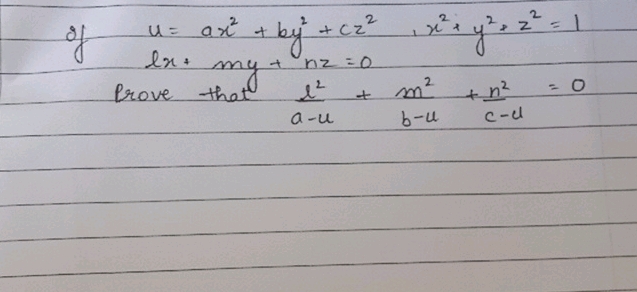 If u = ax² + by² + cz² , x² + y² + z² = 1
lx + my + nz = 0
Prove that l²/a-u + m²/b-u + n²/c-u = 0